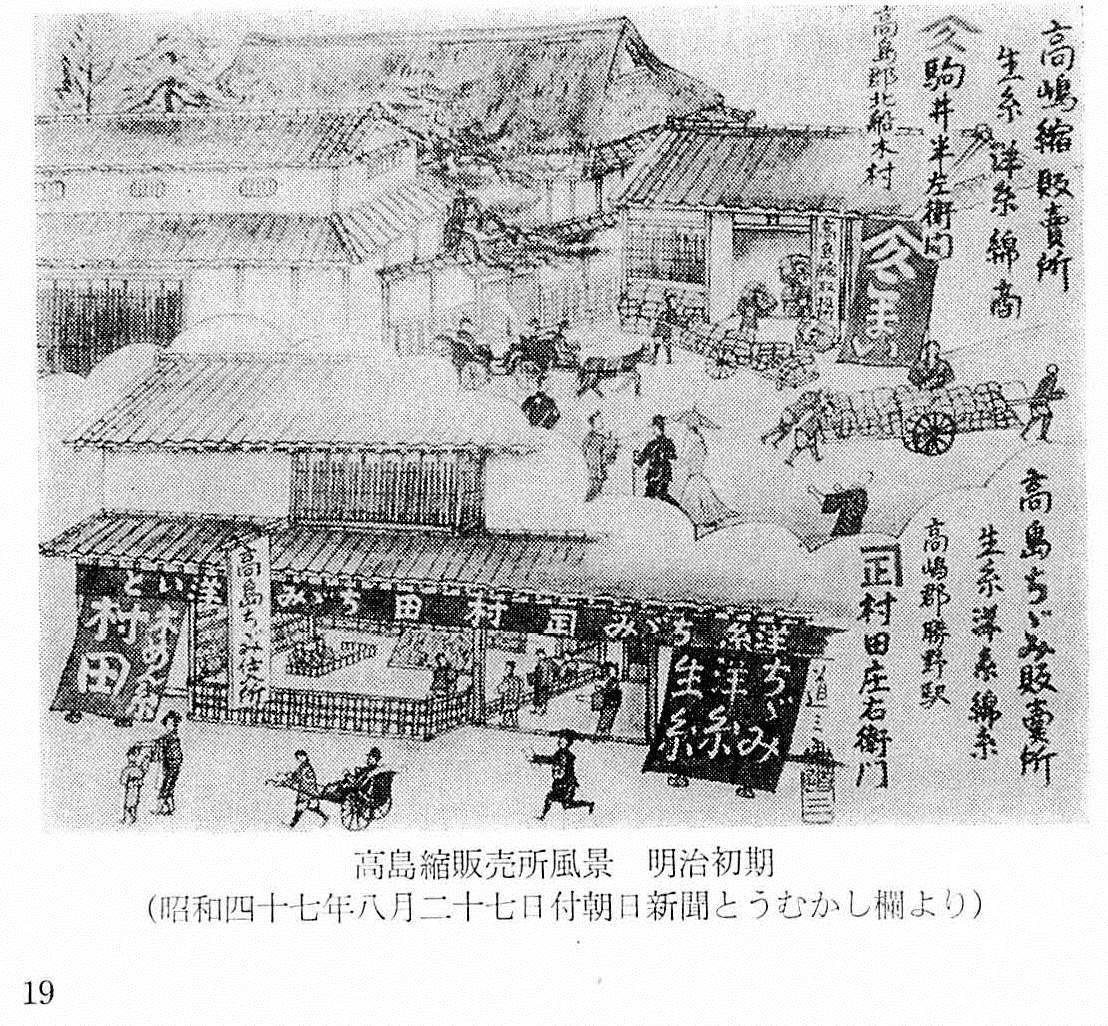 高嶋縮販賣所
生糸 洋糸 綿商
駒井半左衛門
高島郡北船木村
高島ちゞみ販賣所
生糸洋糸綿糸
高嶋郡勝野駅
正村田庄右衛門
村田
高島ちゞみ仕入所
みゞち田村正みゞち
ちゞみ
洋糸
生糸
高島縮販売所風景 明治初期
(昭和四十七年八月二十七日付朝日新聞とうむかし欄より)
19